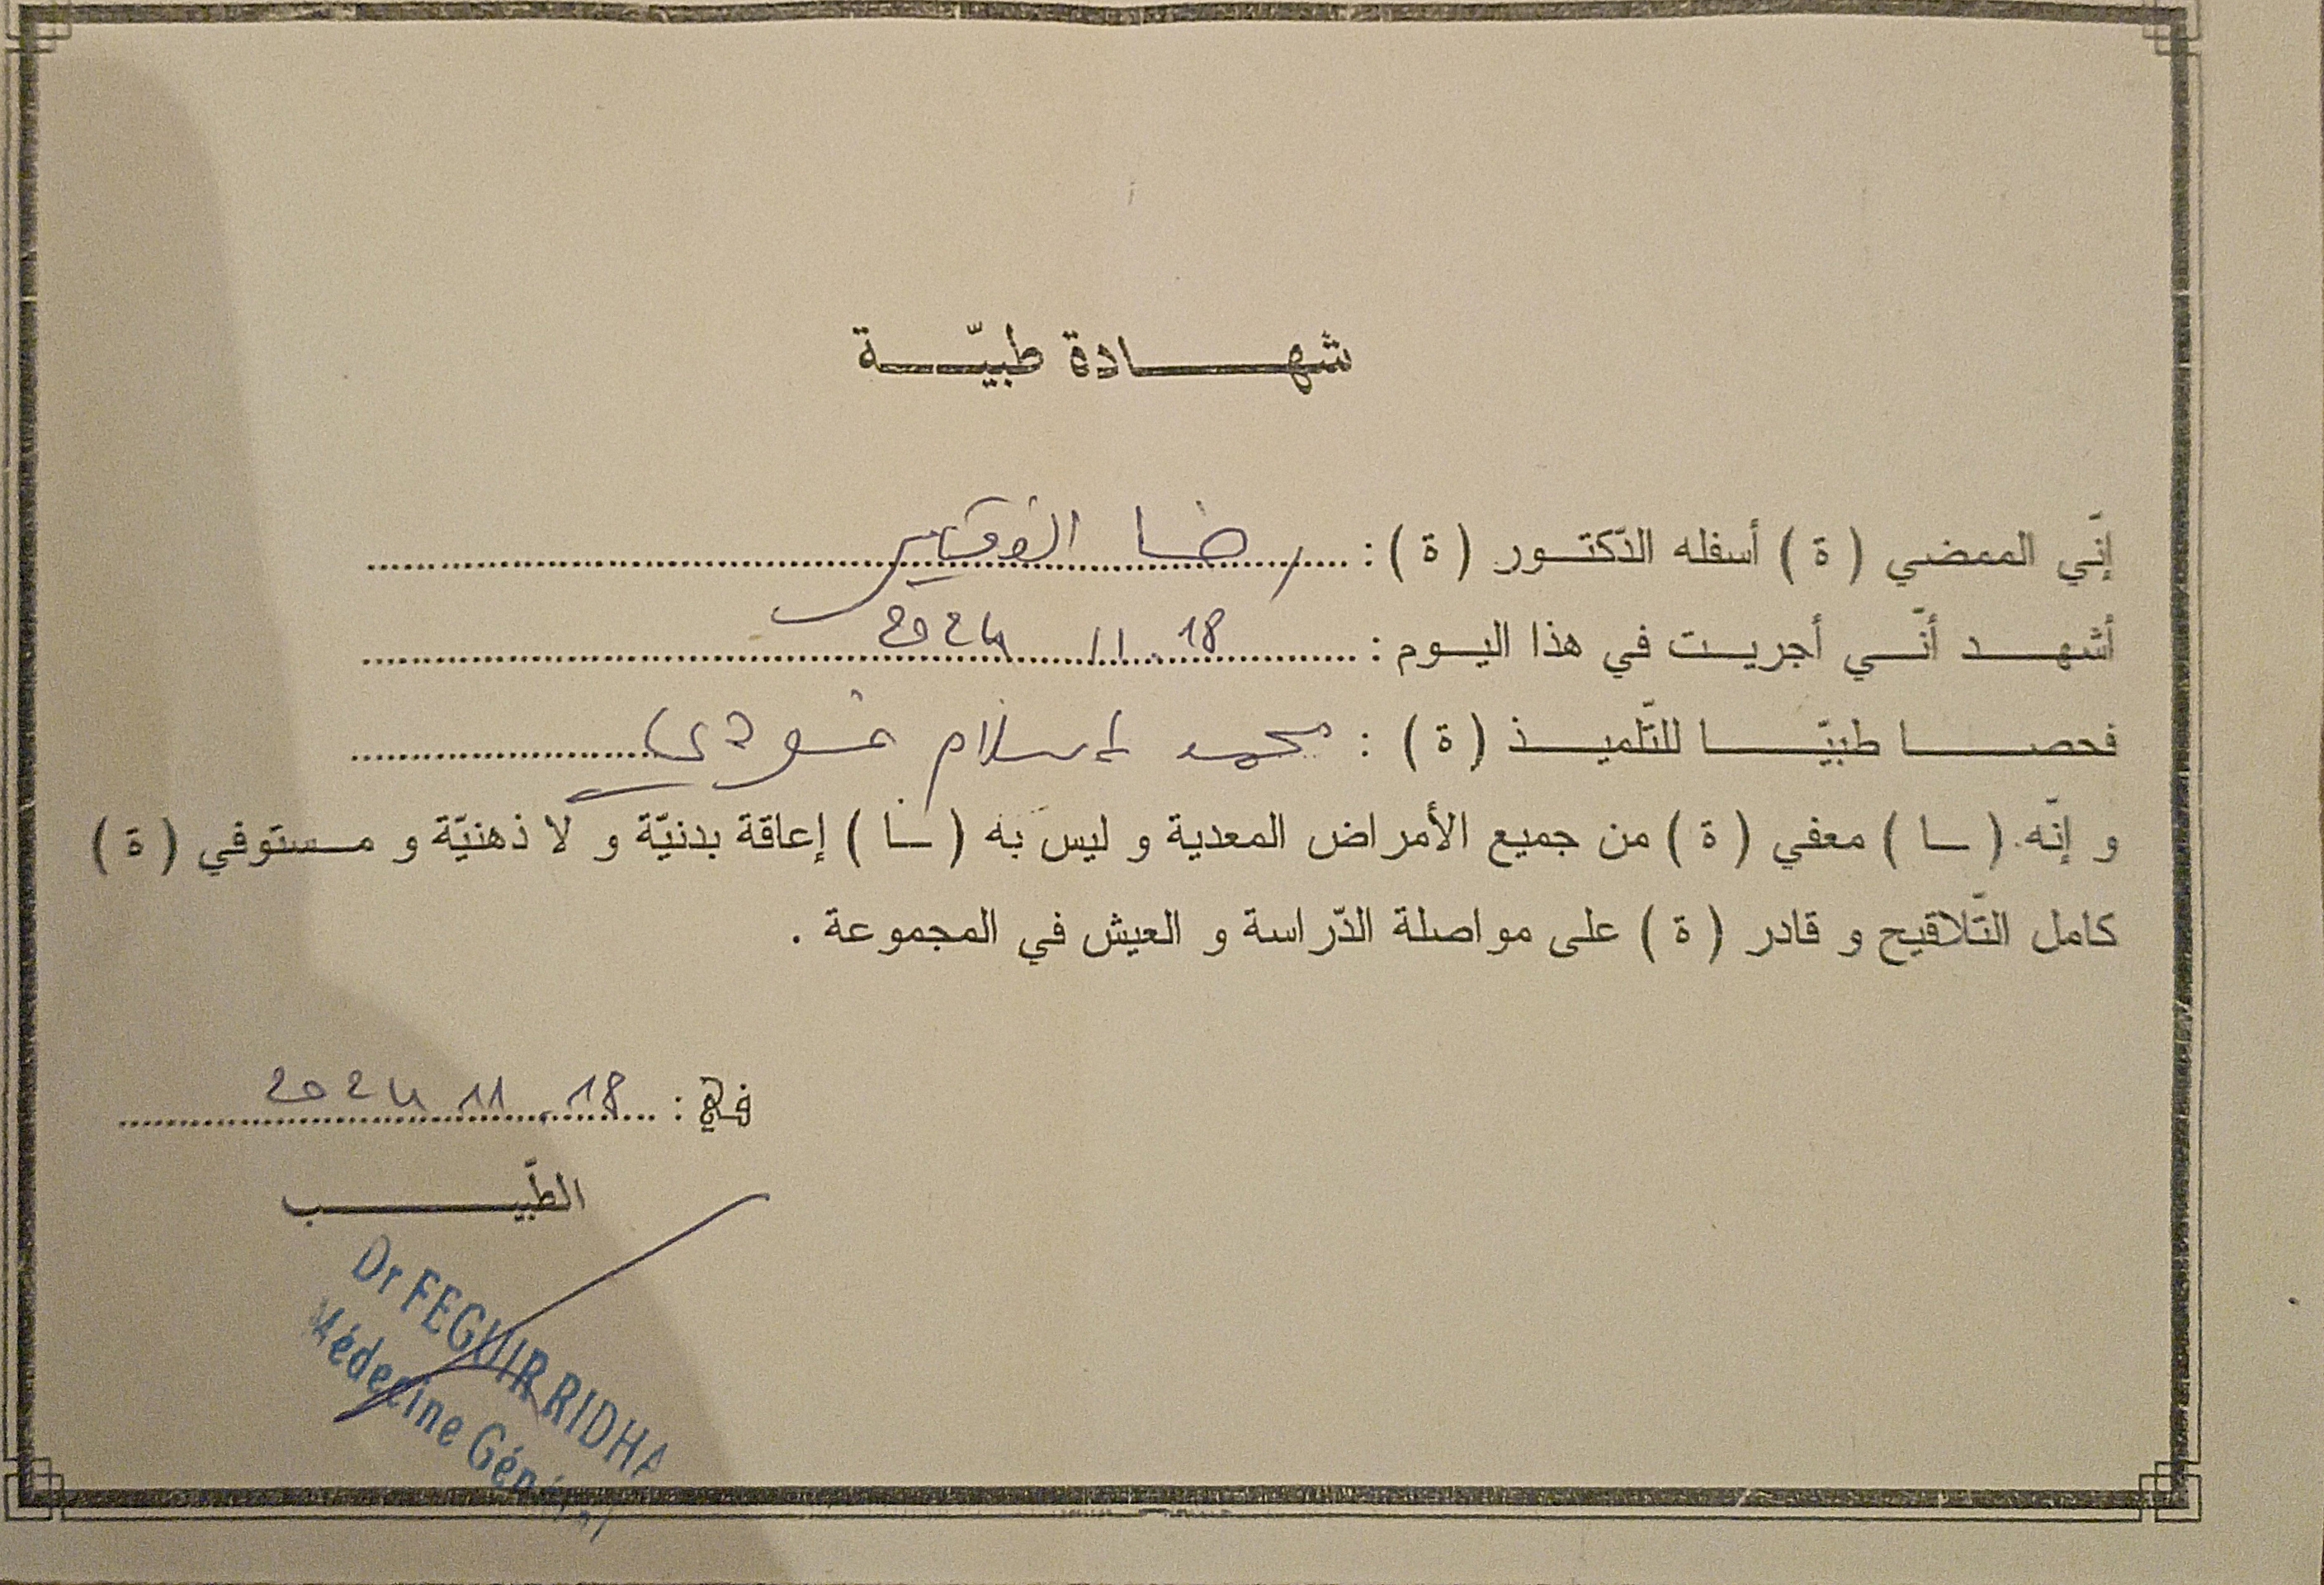 شهادة طبيّة
إنّي الممضي ( ة ) أسفله الدّكتور ( ة ) : رضا الفقير
أشهد أنّي أجريت في هذا اليوم : 18. 11 2024
فحصا طبيّا للتّلميذ ( ة ) : محمد إسلام
و إنّه ( ـا ) معفي ( ة ) من جميع الأمراض المعدية و ليس به ( ـا ) إعاقة بدنيّة و لا ذهنيّة و مستوفي ( ة )
كامل التّلاقيح و قادر ( ة ) على مواصلة الدّراسة و العيش في المجموعة .
في : 18. 11 2024
الطّبيب
Dr FEGUIR RIDHA
Médecine